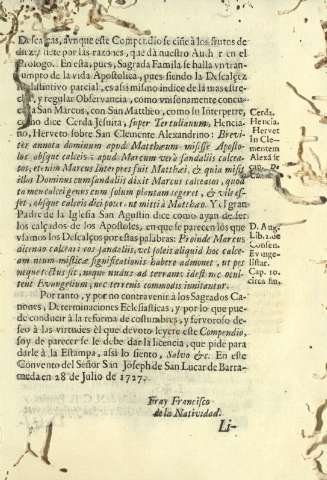 Descalças, aunque este Compendio se ciñe à los frutos de
diez, y siete por las razones, que dà nuestro Auth r en el
Prologo. En esta, pues, Sagrada Familia se halla vn tran-
sumpto de la vida Apostolica, pues siendo la Descalçez
distintivo parcial, es assi mismo indice de la mas estre-
cha, y regular Observancia, como vnisonamente concuer-
da San Marcos, con San Mattheo, como su Interprete,
como dice Cerda Jesuita, super Tertulianum, Hencia-
no, Herveto sobre San Clemente Alexandrino: Brevi-
ter annota dominum apud Matthæum misisse Aposto-
los, absque calceis: apud Marcum verò sandaliis calcea-
tos, etenim Marcus Interpres fuit Matthæi, & quia misit
illos Dominus cum sandaliis dixit Marcus calceatos, quod
tamen calcei genus cum solum plantam tegeret, &
absque calceis dici potuit mitti à Matthæo. Y el gran
Padre de la Iglesia San Agustin dice como ayan de ser
los calçados de los Apostoles, en que se parecen los que
vsamos los Descalços por estas palabras: Proinde Marcus
dicendo calceatos sandaliis, vel soleis aliquid hoc calcea-
tum mysticæ significationis habere admonet, vt pes
neque tectus sit, neque nudus ad terram: idest nec occul-
tent Evangelium, nec terrenis commodis innitantur.
Por tanto, y por no contravenir à los Sagrados Ca-
nones, Determinaciones Eclesiasticas, y por lo que pue-
de conducir à la reforma de costumbres, y fervoroso de-
seo à las virtudes el que devoto leyere este Compendio,
soy de parecer se le debe dar la licencia, que pide para
darle à la Estampa, assi lo siento, Salvo &c. En este
Convento del Señor San Joseph de San Lucar de Barra-
meda en 28 de Julio de 1727.
Fray Francisco
de la Natividad.
Li-
Cerda.
Hencia.
Hervet
in Cle-
mentem
Alexã se
D. Aug.
Lib. 2. de
Consen.
Evange-
listar.
Cap. 10.
circa fin.